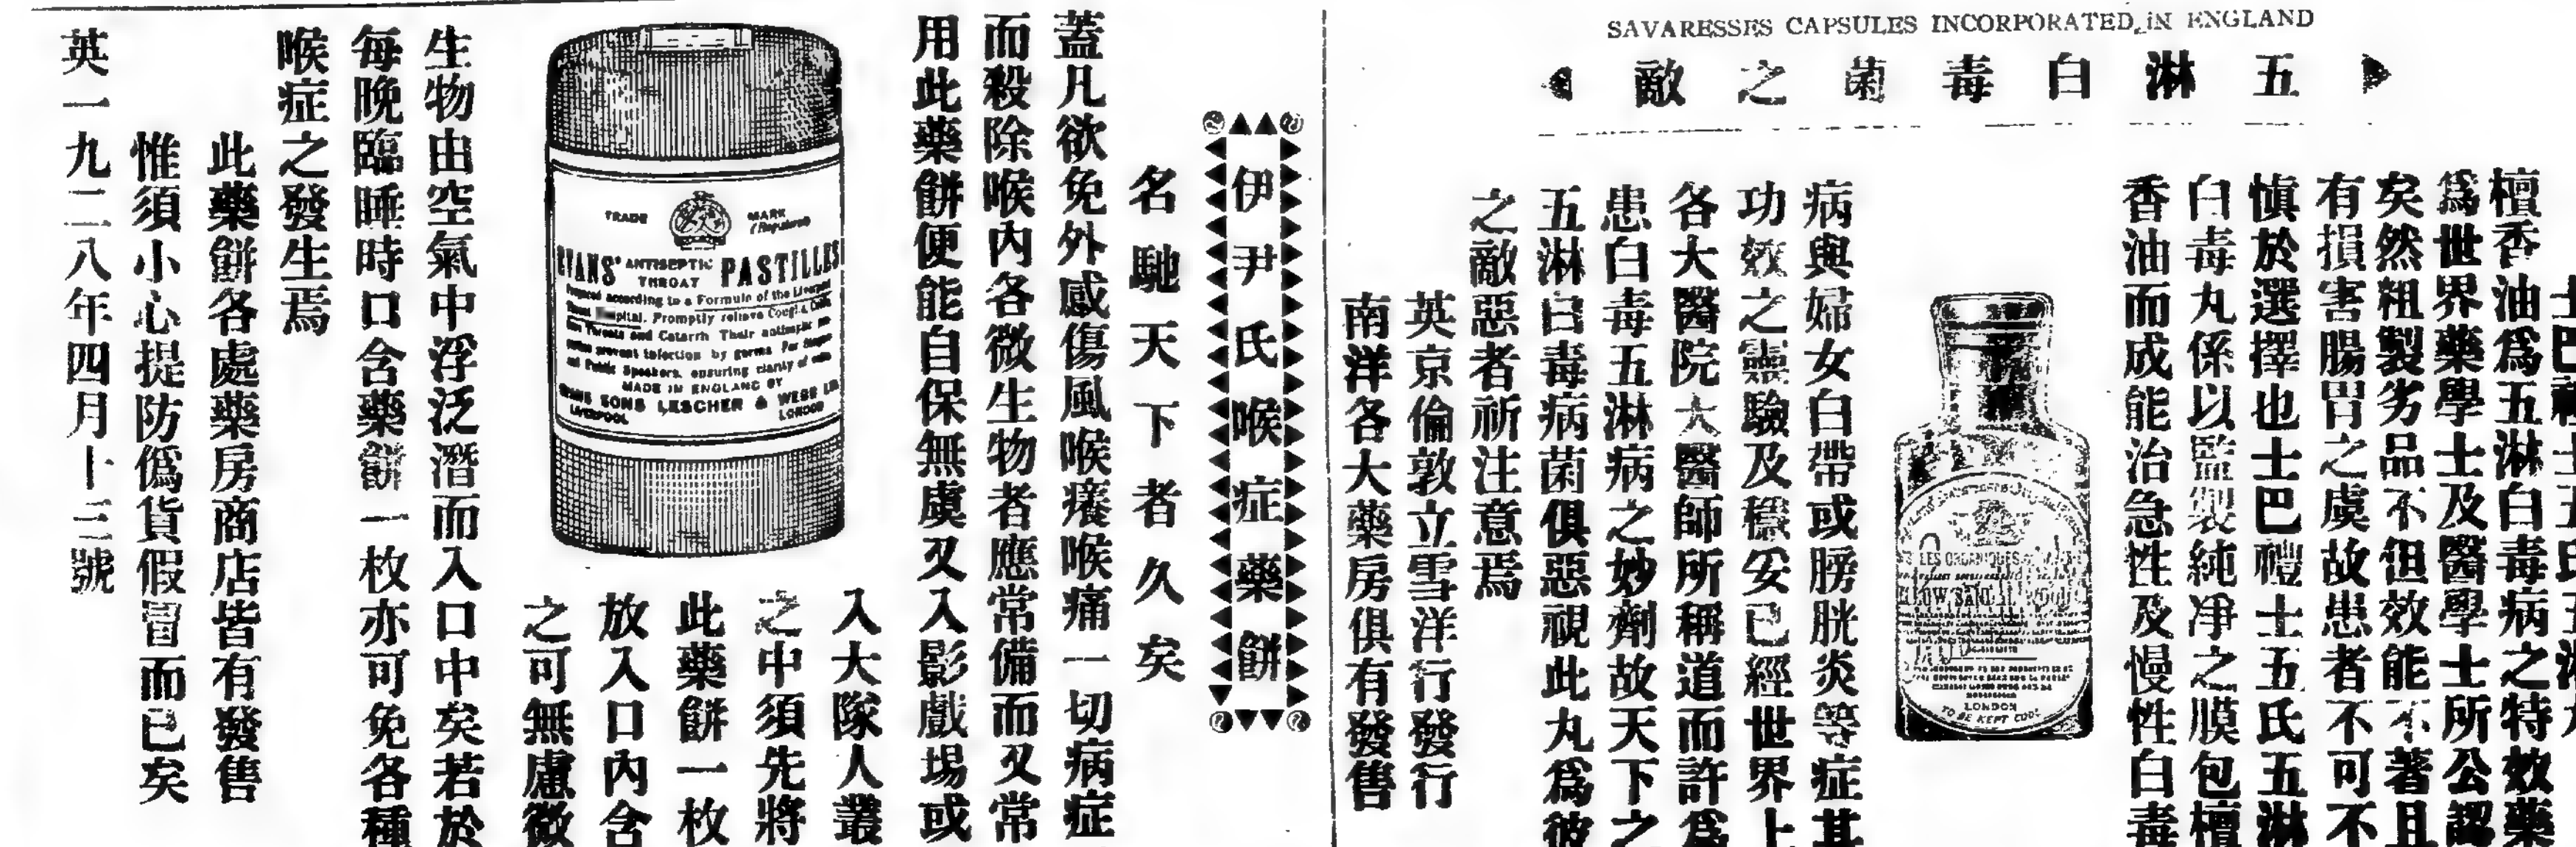 SAVARESSES CAPSULES INCORPORATED, IN ENGLAND
五淋白毒菌之敵
士巴禮士五氏五淋
檀香油爲五淋白毒病之特效藥
爲世界藥學士及醫學士所公認
矣然粗製劣品不但效能不著且
有損害腸胃之虞故患者不可不
慎於選擇也士巴禮士五氏五淋
白毒丸係以監製純凈之膜包檀
香油而成能治急性及慢性白毒
病與婦女白帶或膀胱炎等症其
功效之靈驗及穩妥已經世界上
各大醫院大醫師所稱道而許爲
患白毒五淋病之妙劑故天下之
五淋白毒病菌俱惡視此丸爲彼
之敵惡者祈注意焉
英京倫敦立雪洋行發行
南洋各大藥房俱有發售
LONDON
TO BE KEPT COOL
伊尹氏喉症藥餅
名馳天下者久矣
蓋凡欲免外感傷風喉癢喉痛一切病症
而殺除喉內各微生物者應常備而又常
用此藥餅便能自保無虞又入影戲場或
入大隊人叢
之中須先將
此藥餅一枚
放入口內含
之可無慮微
TRADE MARK
(Registered)
EVANS' ANTISEPTIC THROAT PASTILLES
Prepared according to a Formula of the Liverpool
Hospital. Promptly relieve Coughs, Colds,
Throats and Catarrh Their antiseptic
prevent infection by germs For Singers
and Public Speakers, ensuring clarity of voice
MADE IN ENGLAND BY
EVANS SONS LESCHER & WEBB LTD.
LIVERPOOL LONDON
生物由空氣中浮泛潛而入口中矣若於
每晚臨睡時口含藥餅一枚亦可免各種
喉症之發生焉
此藥餅各處藥房商店皆有發售
惟須小心提防僞貨假冒而已矣
英一九二八年四月十三號